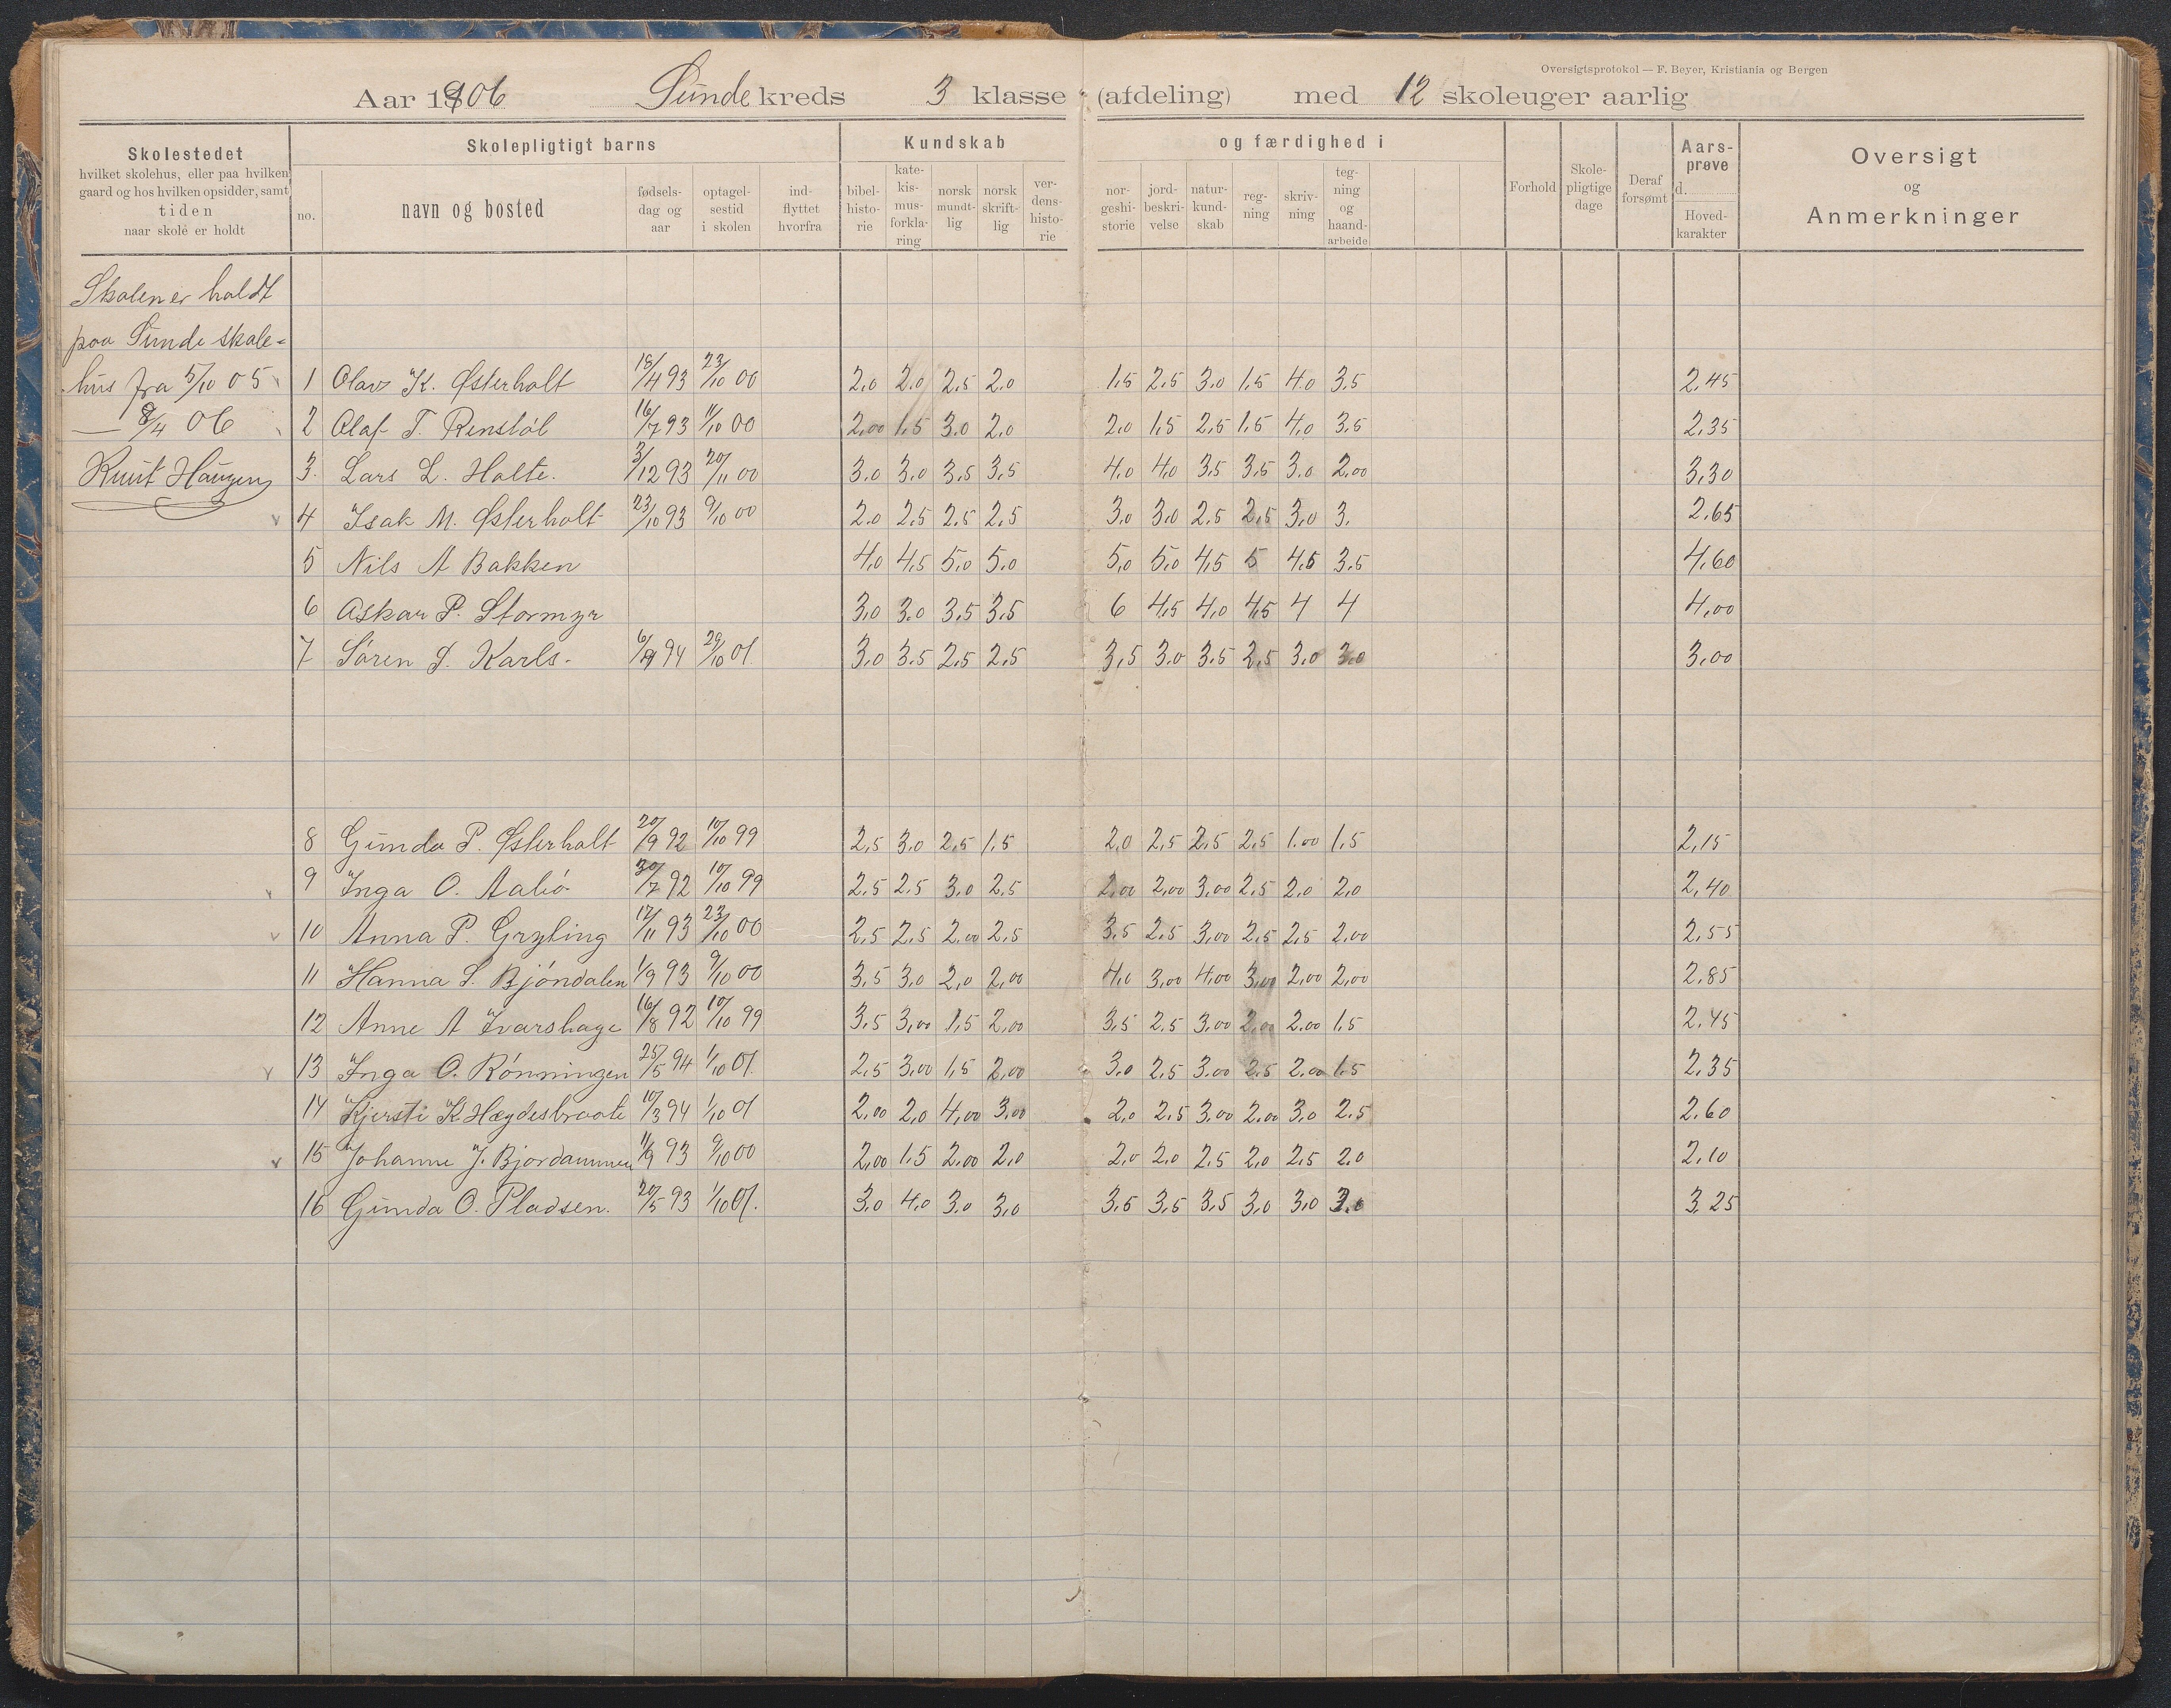 Oversigtsprotokol — F. Beyer, Kristiania og Bergen
Aar 1906 Sunde kreds 3 klasse (afdeling) med 12 skoleuger aarlig
Skolestedet
hvilket skolehus, eller paa hvilken
gaard og hos hvilken opsidder, samt
tiden
naar skole er holdt
Skolepligtigt barns
no.
navn og bosted
fødsels-
dag og
aar
optagel-
sestid
i skolen
ind-
flyttet
hvorfra
Kundskab
bibel-
histo-
rie
kate-
kis-
mus-
forkla-
ring
norsk
mundt-
lig
norsk
skrift-
lig
ver-
dens-
histo-
rie
og færdighed i
nor-
geshi-
storie
jord-
beskri-
velse
natur-
kund-
skab
reg-
ning
skriv-
ning
teg-
ning
og
haand-
arbeide
Forhold
Skole-
pligtige
dage
Deraf
forsømt
Aars-
prøve
d.
Hoved-
karakter
Oversigt
og
Anmerkninger
Skolen er holdt
paa Sunde skole-
hus fra 5/10 05
— 8/4 06
Knut Haugen
1 Olav K. Østerholt 18/4 93 23/10 00 2,0 2,0 2,5 2,0 1,5 2,5 3,0 1,5 4,0 3,5 2,45
2 Olaf T. Renstöl 16/7 93 11/10 00 2,00 1,5 3,0 2,0 2,0 1,5 2,5 1,5 4,0 3,5 2,35
3. Lars L. Holte. 3/12 93 20/11 00 3,0 3,0 3,5 3,5 4,0 4,0 3,5 3,5 3,0 2,00 3,30
4 Isak M. Østerholt 23/10 93 9/10 00 2,0 2,5 2,5 2,5 3,0 3,0 2,5 2,5 3,0 3. 2,65
5 Nils A Bakken 4,0 4,5 5,0 5,0 5,0 5,0 4,5 5 4,5 3,5 4,60
6 Oskar P. Stormyr 3,0 3,0 3,5 3,5 6 4,5 4,0 4,5 4 4 4,00
7 Sören S. Karls. 94 29/10 01. 3,0 3,5 2,5 2,5 3,5 3,0 3,5 2,5 3,0 3,0 3,00
8 Gunda P. Østerholt 20/9 92 10/10 99 2,5 3,0 2,5 1,5 2,0 2,5 2,5 2,5 1,00 1,5 2,15
9 Inga O. 30/7 92 10/10 99 2,5 2,5 3,0 2,5 2,00 2,00 3,00 2,5 2,0 2,0 2,40
10 Anna P. Gryting 17/11 93 23/10 00 2,5 2,5 2,00 2,5 3,5 2,5 3,00 2,5 2,5 2,00 2,55
11 Hanna S. Bjöndalen 1/9 93 9/10 00 3,5 3,0 2,0 2,00 4,0 3,00 4,00 3,00 2,00 2,00 2,85
12 Anne A Ivarshage 16/8 92 10/10 99 3,5 3,00 1,5 2,00 3,5 2,5 3,00 2,00 2,00 1,5 2,45
13 Inga O. Rönningen 25/5 94 1/10 01. 2,5 3,00 1,5 2,00 3,0 2,5 3,00 2,5 2,00 1,5 2,35
14 Kjersti K. 10/3 94 1/10 01 2,00 2,0 4,00 3,00 2,0 2,5 3,00 2,00 3,0 2,5 2,60
15 Johanne J. 11/9 93 9/10 00 2,00 1,5 2,00 2,0 2,0 2,0 2,5 2,0 2,5 2,0 2,10
16 Gunda O. Pladsen. 20/5 93 1/10 01. 3,0 4,0 3,0 3,0 3,5 3,5 3,5 3,0 3,0 3,0 3,25